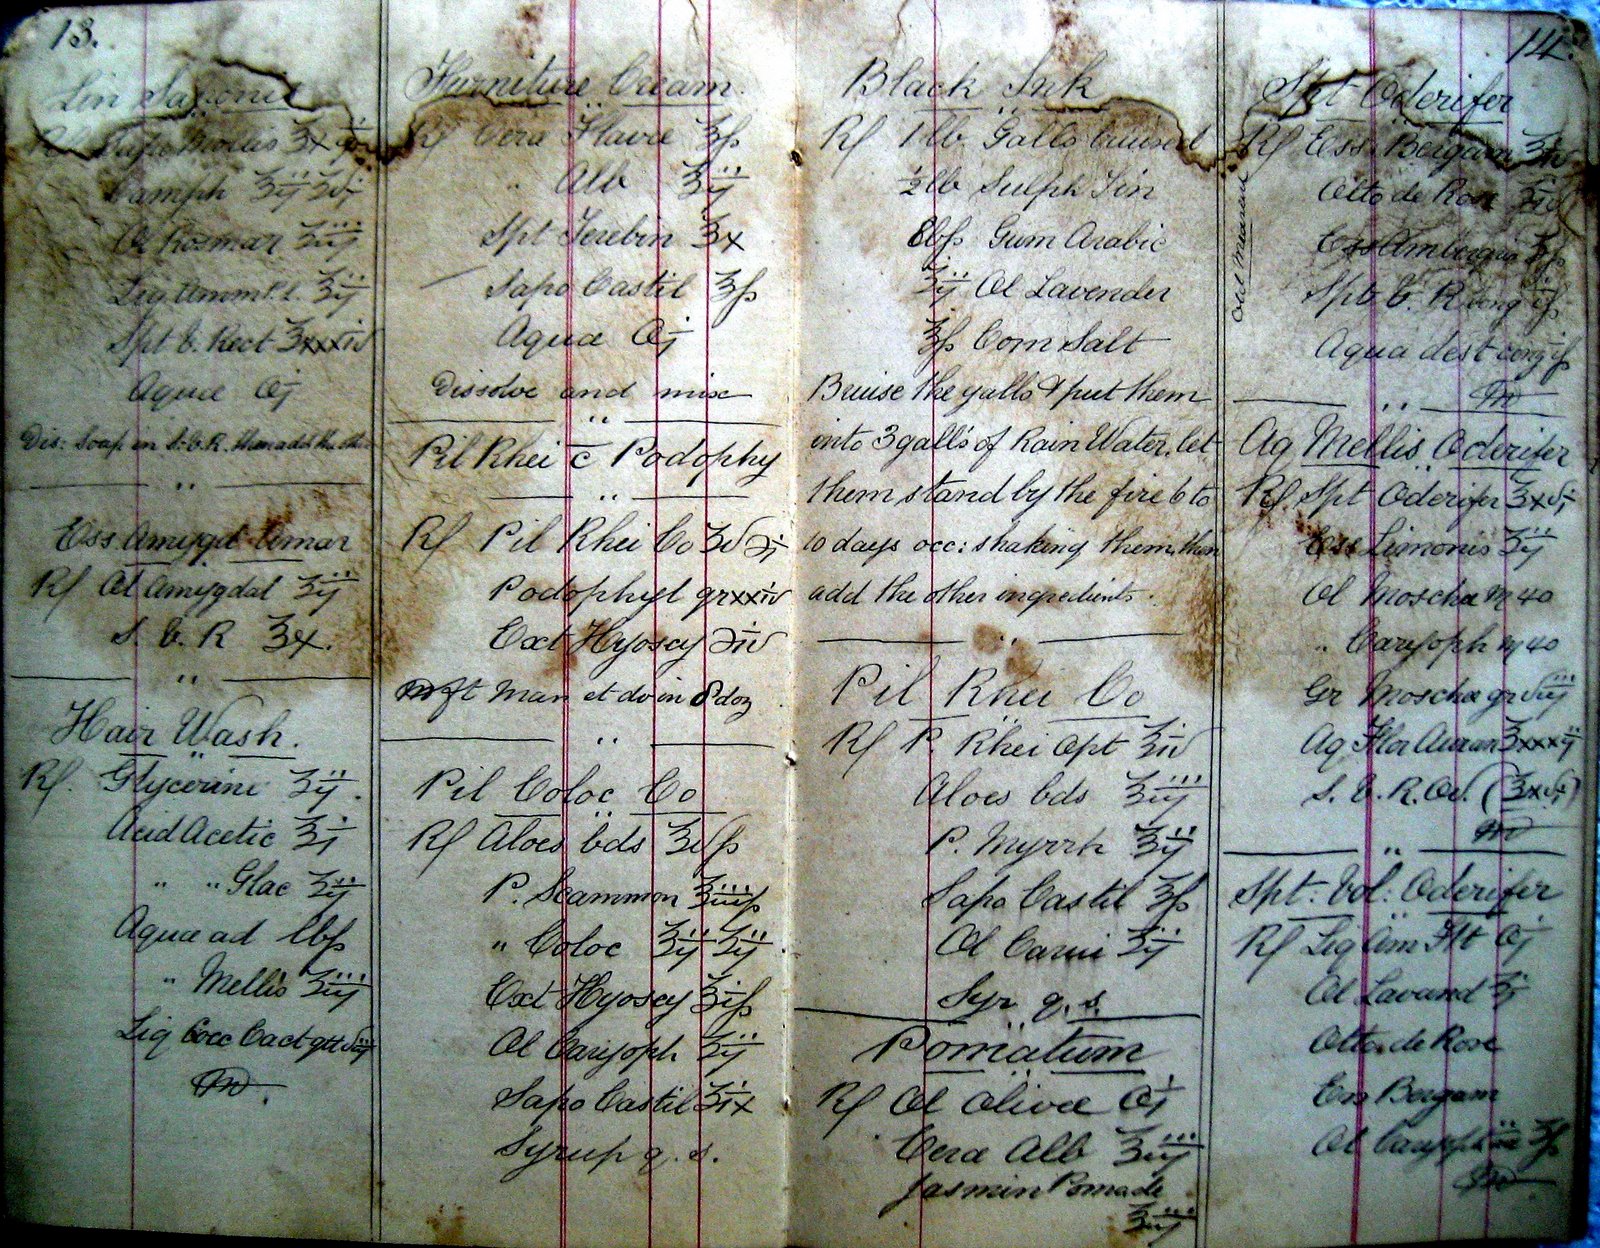 13.
Lin Saponis
Rf Sapo Mollis ℥x
Camph ℥ij ʒvj
Ol Rosmar ʒiij
Liq Ammt. ℥ij
Spt V. Rect ℥xxxiv
Aqua Oj
Dis: Soap in S.V.R. then add the other
Ess Amygd Amar
Rf Ol Amygdal ʒij
S. V. R ℥x.
Hair Wash.
Rf. Glycerine ℥ij.
Acid Acetic ℥j
" " Glac ʒij
Aqua ad lbſs
" Mellis ℥iij
Liq Cocc Cact gtt
M.
Furniture Cream.
Rf Cera Flavae ℥ſs
" Alb ℥ij
Spt Terebin ℥x
Sapo Castil ℥ſs
Aqua Oj
Dissolve and mix
Pil Rhei c̄ Podophy
Rf Pil Rhei Co ʒv ℈j
Podophyl grxxiv
Ext Hyoscy ℈iv
M ft Mas et div in 8 doz
Pil Coloc Co
Rf Aloes bds ℥vſs
P. Scammon ℥iiiſs
" Coloc ℥ij ʒij.
Ext Hyoscy ℥iſs
Ol Caryoph ʒij
Sapo Castil ʒix
Syrup q. s.
Black Ink
Rf 1 lb Galls bruised
½ lb Sulph Fin
8 Gum Arabic
ʒij Ol Lavender
℥ſs Com Salt
Bruise the galls & put them
into 3 galls of Rain Water. let
them stand by the fire 6 to
10 days occ: shaking them, then
add the other ingredients.
Pil Rhei Co
Rf P. Rhei opt ʒiv
Aloes bds ʒiij
P. Myrrh ʒij
Sapo Castil ʒſs
Ol Carui ʒij
Syr q. s.
Pomatum
Rf Ol Olivae Oj
Cera Alb ℥iij
Jasmin Pomade
℥iij
14.
Old Measure
Spt Oderifer
Rf Ess Bergam ℥iv
Otto de Rose
Ess Ambergris
Spt V. R cong
Aqua dest cong
M
Aq Mellis Oderifer
Rf Spt Oderifer ℥xvj
Ess Limonis ʒij
Ol Moscha ♏40
" Caryoph ♏40
Gr Moscha gr
Aq Flor Auran ℥xxxij
S. V. R. (℥xvj)
M
Spt: Vol: Oderifer
Rf Liq Am Flt Oj
Ol Lavand ʒj
Otto de Rose
Ess Bergam
Ol Caryoph
M